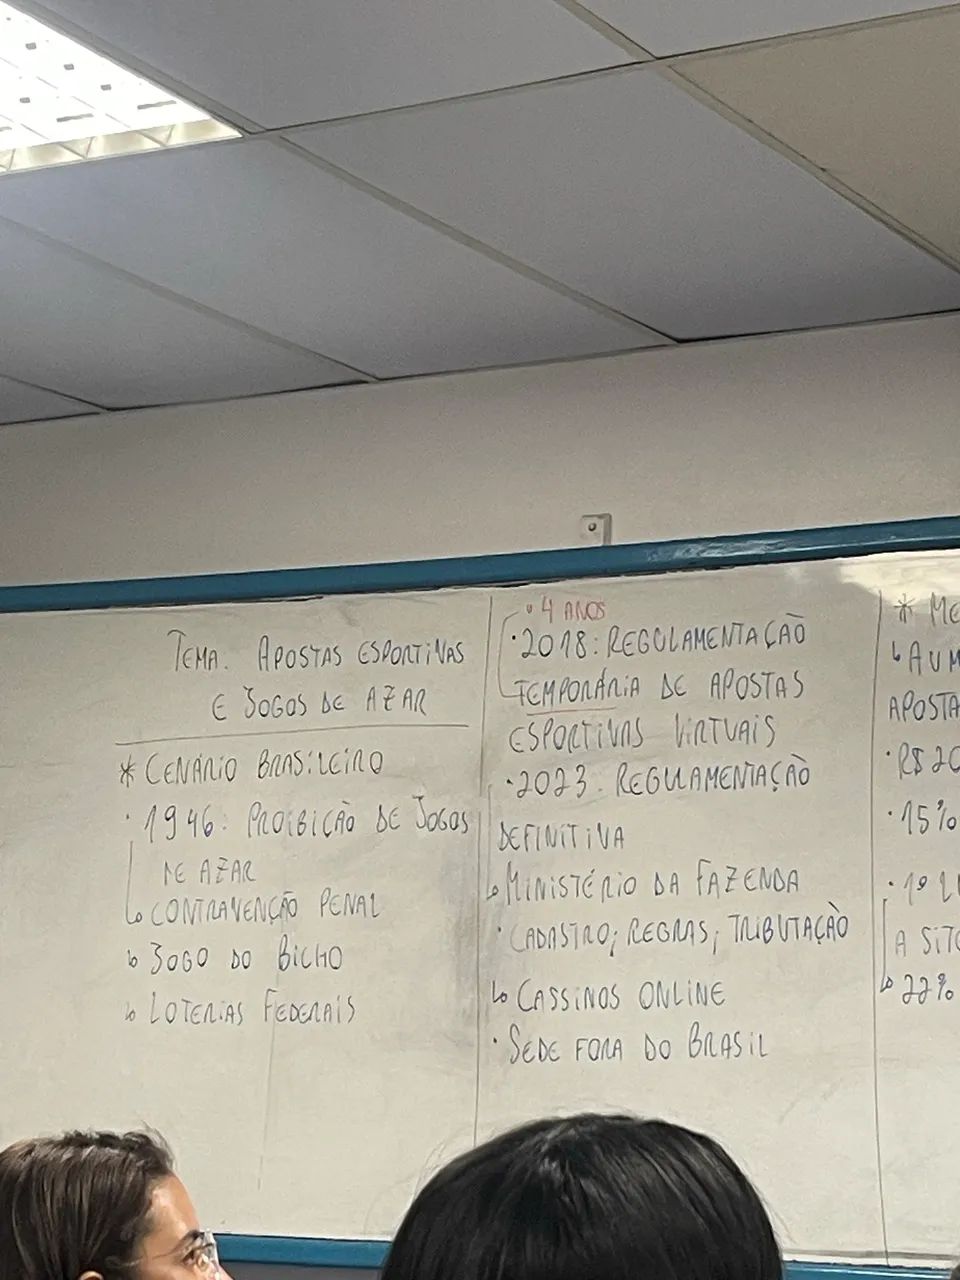 TEMA: APOSTAS ESPORTIVAS
E JOGOS DE AZAR
* CENÁRIO BRASILEIRO
• 1946: PROIBIÇÃO DE JOGOS
DE AZAR
↳ CONTRAVENÇÃO PENAL
↳ JOGO DO BICHO
↳ LOTERIAS FEDERAIS
• 4 ANOS
• 2018: REGULAMENTAÇÃO
TEMPORÁRIA DE APOSTAS
ESPORTIVAS VIRTUAIS
• 2023: REGULAMENTAÇÃO
DEFINITIVA
↳ MINISTÉRIO DA FAZENDA
• CADASTRO; REGRAS; TRIBUTAÇÃO
↳ CASSINOS ONLINE
• SEDE FORA DO BRASIL
* ME
↳ AUM
APOSTA
• R$ 20
• 15%
• 1º L
A SITE
↳ 22%